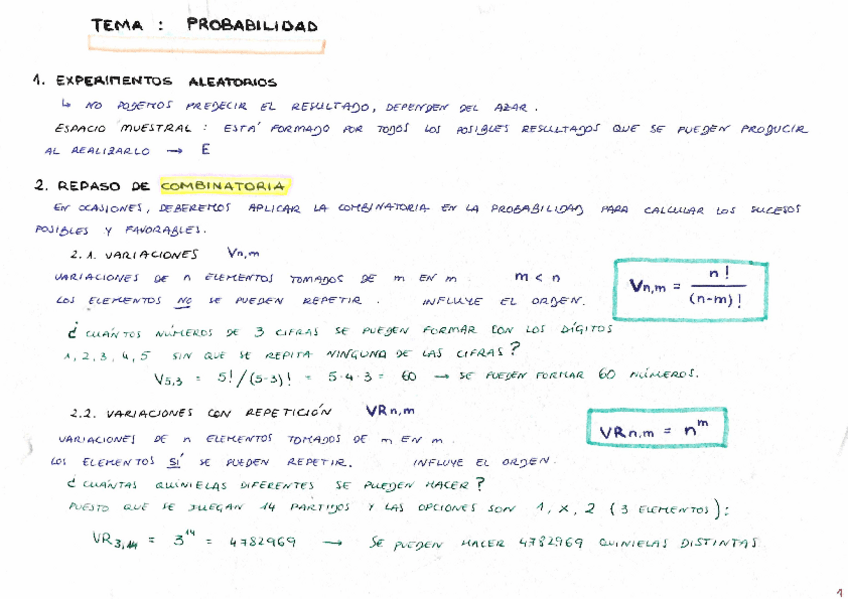 TEMA : PROBABILIDAD
1. EXPERIMENTOS ALEATORIOS
↳ NO PODEMOS PREDECIR EL RESULTADO, DEPENDEN DEL AZAR.
ESPACIO MUESTRAL : ESTÁ FORMADO POR TODOS LOS POSIBLES RESULTADOS QUE SE PUEDEN PRODUCIR
AL REALIZARLO → E
2. REPASO DE COMBINATORIA
EN OCASIONES, DEBEREMOS APLICAR LA COMBINATORIA EN LA PROBABILIDAD PARA CALCULAR LOS SUCESOS
POSIBLES Y FAVORABLES.
2.1. VARIACIONES Vn,m
VARIACIONES DE n ELEMENTOS TOMADOS DE m EN m. m < n
LOS ELEMENTOS NO SE PUEDEN REPETIR. INFLUYE EL ORDEN.
Vn,m = n! / (n-m)!
¿CUÁNTOS NÚMEROS DE 3 CIFRAS SE PUEDEN FORMAR CON LOS DÍGITOS
1, 2, 3, 4, 5 SIN QUE SE REPITA NINGUNA DE LAS CIFRAS?
V5,3 = 5! / (5-3)! = 5·4·3 = 60 → SE PUEDEN FORMAR 60 NÚMEROS.
2.2. VARIACIONES CON REPETICIÓN VRn,m
VARIACIONES DE n ELEMENTOS TOMADOS DE m EN m.
LOS ELEMENTOS SÍ SE PUEDEN REPETIR. INFLUYE EL ORDEN.
VRn,m = n^m
¿CUÁNTAS QUINIELAS DIFERENTES SE PUEDEN HACER?
PUESTO QUE SE JUEGAN 14 PARTIDOS Y LAS OPCIONES SON 1, X, 2 (3 ELEMENTOS):
VR3,14 = 3^14 = 4782969 → SE PUEDEN HACER 4782969 QUINIELAS DISTINTAS
1